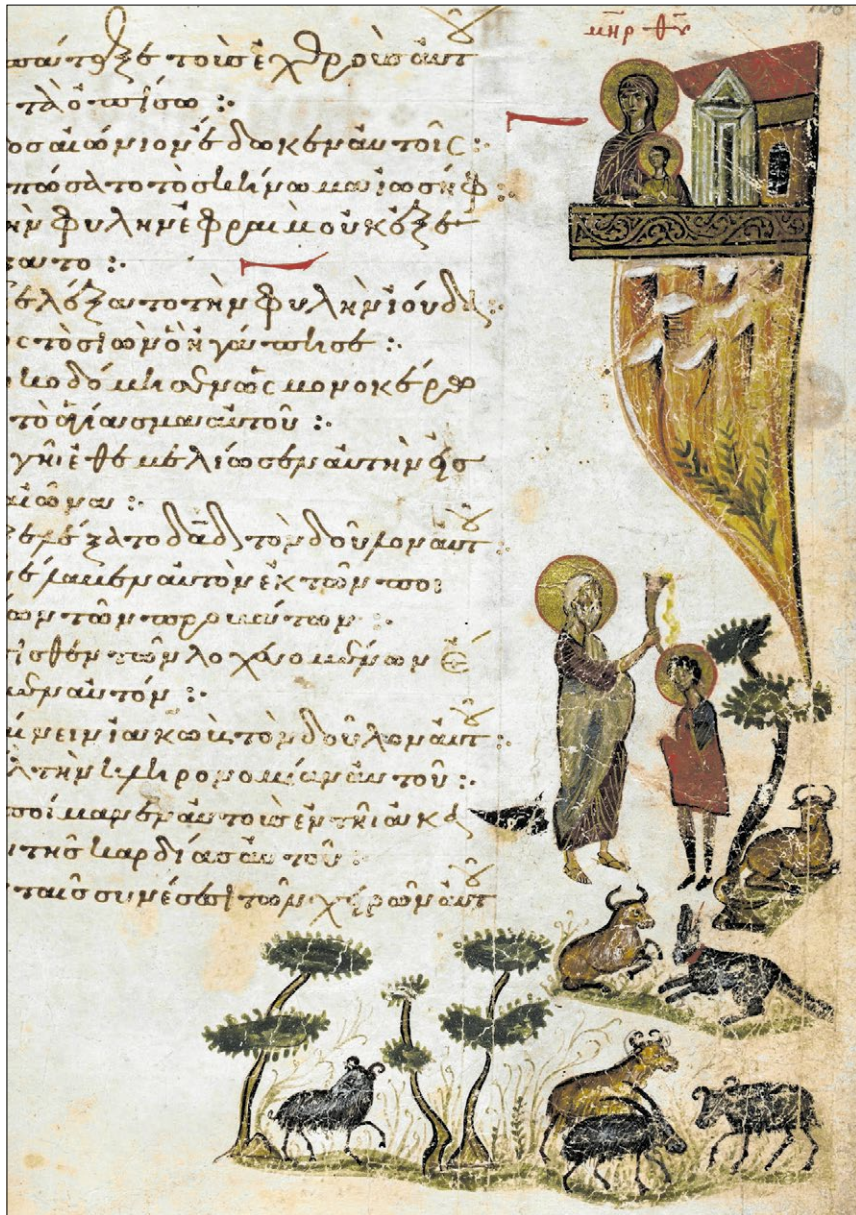 μηρ θυ
τοὺς ἐχθροὺς αὐτοῦ
τὰ ὀπίσω :·
αἰώνιον ἔδωκεν αὐτοῖς :·
πώσατο τὸ σκήνωμα ἰωσὴφ :·
φυλὴν ἐφραὶμ οὐκ ἐξε
ξατο :·
ελέξατο τὴν φυλὴν ἰούδα :·
τὸ σιὼν ὃ ἠγάπησε :·
κοδόμησεν ὡς μονοκέρω
τὸ ἁγίασμα αὐτοῦ :·
γῆι ἐθεμελίωσεν αὐτὴν εἰς
αἰῶνα :·
ελέξατο δαδ τὸν δοῦλον αὐτοῦ :·
έλαβεν αὐτὸν ἐκ τῶν ποι
ων τῶν προβάτων :·
ισθεν τῶν λοχευομένων ἔ
εν αὐτόν :·
νειν ἰακὼβ τὸν δοῦλον αὐτοῦ :·
ηλ τὴν κληρονομίαν αὐτοῦ :·
ποίμανεν αὐτοὺς ἐν τῆι ἀκα
τῆς καρδίας αὐτοῦ :·
ταῖς συνέσεσι τῶν χειρῶν αὐτοῦ